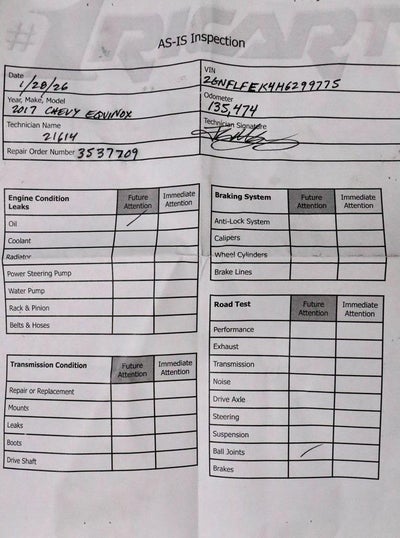 AS-IS Inspection
Date
1/28/26
VIN
2GNFLFEK4H6299775
Year, Make, Model
2017 CHEVY EQUINOX
Odometer
135,474
Technician Name
21614
Technician Signature
Repair Order Number 3537709
Engine Condition
Leaks
Future
Attention
Immediate
Attention
Oil
Coolant
Radiator
Power Steering Pump
Water Pump
Rack & Pinion
Belts & Hoses
Transmission Condition
Future
Attention
Immediate
Attention
Repair or Replacement
Mounts
Leaks
Boots
Drive Shaft
Braking System
Future
Attention
Immediate
Attention
Anti-Lock System
Calipers
Wheel Cylinders
Brake Lines
Road Test
Future
Attention
Immediate
Attention
Performance
Exhaust
Transmission
Noise
Drive Axle
Steering
Suspension
Ball Joints
Brakes